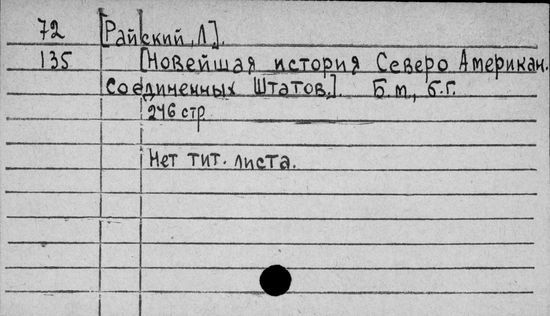 72 [Райский, Л].
135 [Новейшая история Северо Американ.
Соединенных Штатов.]. Б.м., б.г.
246 стр.
Нет тит. листа.